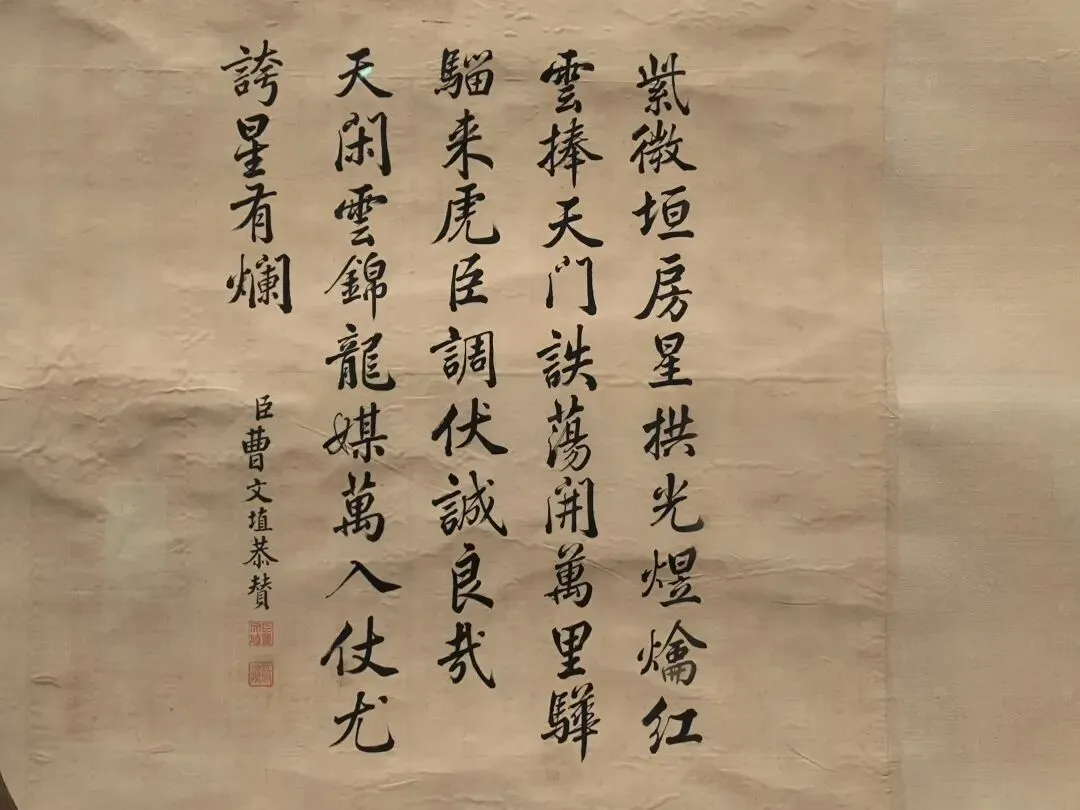 紫微垣房星拱光煜爚紅
雲捧天門詄蕩開萬里驊
騮来虎臣調伏誠良哉
天閑雲錦龍媒萬入仗尤
誇星有爛
臣曹文埴恭賛